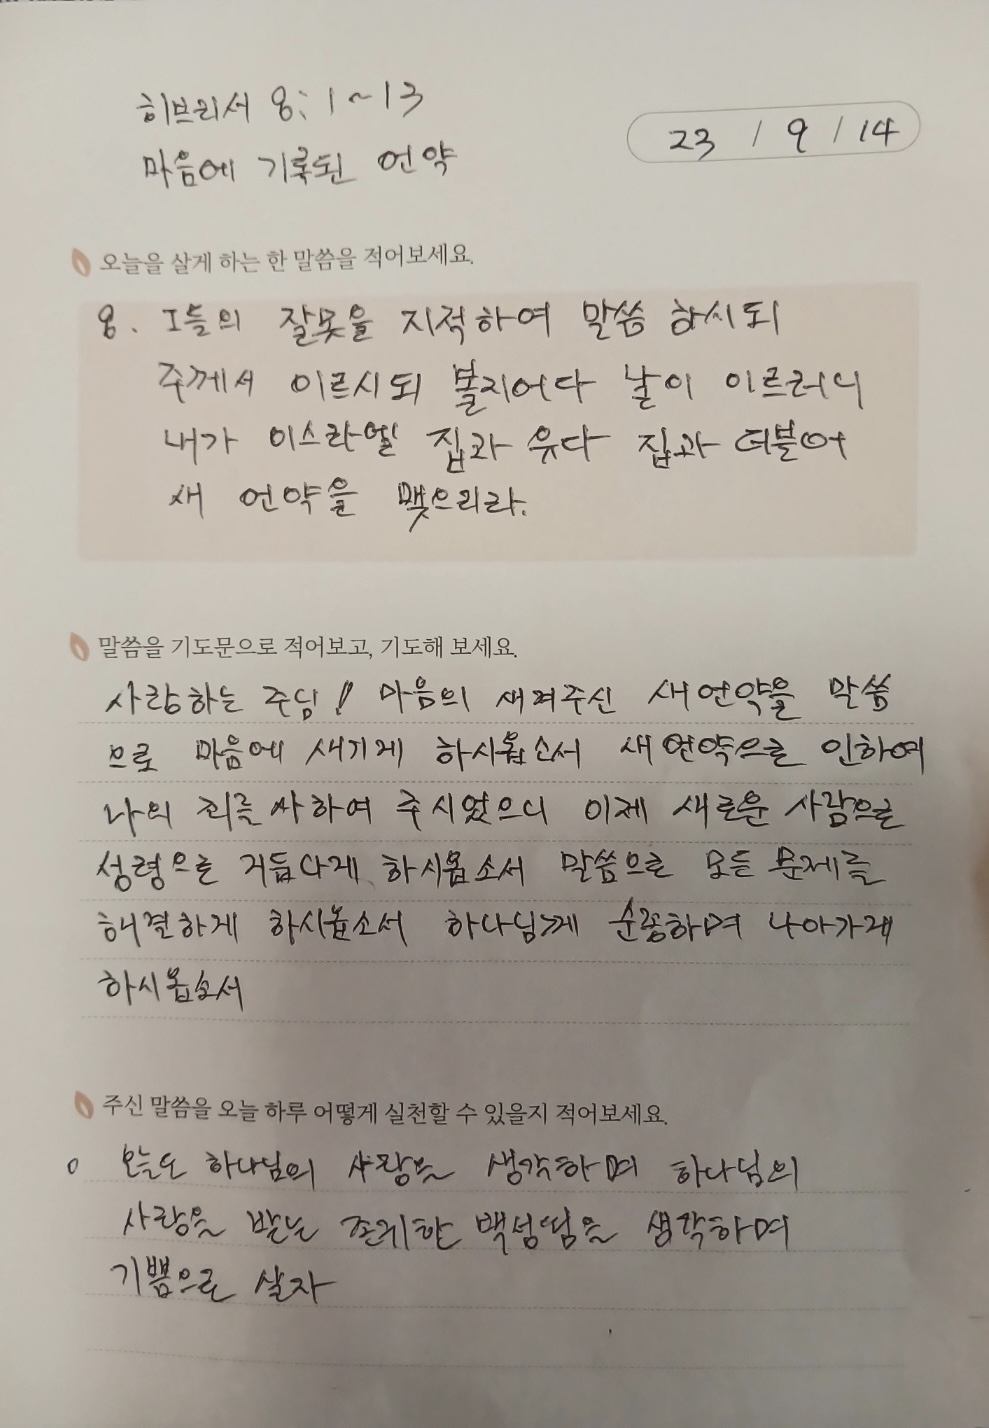 히브리서 8:1~13
23 / 9 / 14
마음에 기록된 언약
오늘을 살게 하는 한 말씀을 적어보세요.
8. 그들의 잘못을 지적하여 말씀 하시되
주께서 이르시되 볼지어다 날이 이르러니
내가 이스라엘 집과 유다 집과 더불어
새 언약을 맺으리라.
말씀을 기도문으로 적어보고, 기도해 보세요.
사랑하는 주님! 마음의 새겨주신 새언약을 말씀
으로 마음에 새기게 하시옵소서 새 언약으로 인하여
나의 죄를 사하여 주시었으니 이제 새로운 사람으로
성령으로 거듭나게 하시옵소서 말씀으로 모든 문제를
해결하게 하시옵소서 하나님께 순종하며 나아가게
하시옵소서
주신 말씀을 오늘 하루 어떻게 실천할 수 있을지 적어보세요.
o 오늘도 하나님의 사랑을 생각하며 하나님의
사랑을 받는 존귀한 백성됨을 생각하며
기쁨으로 살자